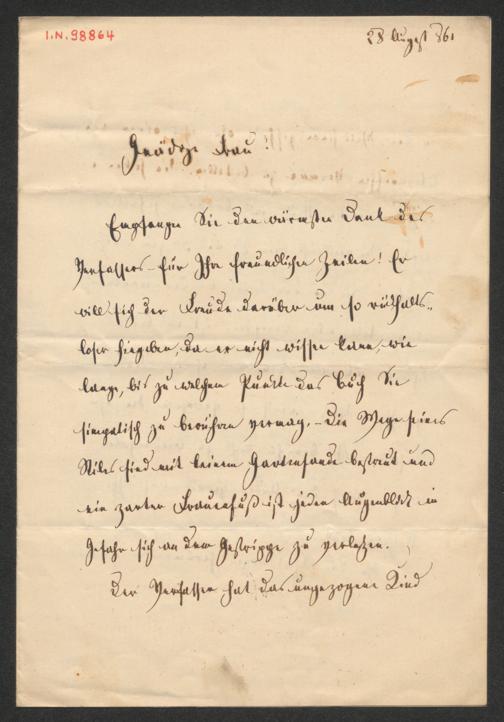 I.N. 98864
28 August 861
Gnädige Frau!
Empfangen Sie den wärmsten Dank des
Verfassers für Ihre freundlichen Zeilen! Er
will sich der Freude darüber um so rückhalts-
loser hingeben, da er nicht wissen kann, wie
lange, bis zu welchem Punkte das Buch Sie
simpatisch zu berühren vermag. – Die Wege seines
Stiles sind mit keinem Gartensande bestreut und
ein zarter Frauenfuß ist jeden Augenblick in
Gefahr sich an dem Gestrippe zu verletzen.
Der Verfasser hat das ungezogene Kind